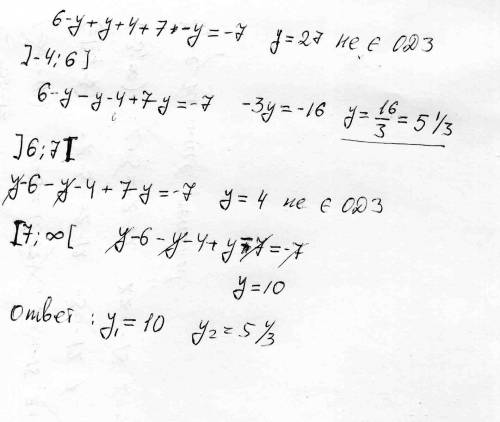 6-y+y+4+7-y=-7 y=27 не є ОДЗ
]-4;6]
6-y-y-4+7-y=-7 -3y=-16 y=16/3=5 1/3
]6;7[
y-6-y-4+7-y=-7 y=4 не є ОДЗ
[7;∞[ y-6-y-4+y-7=-7
y=10
ответ: y₁=10 y₂=5 1/3